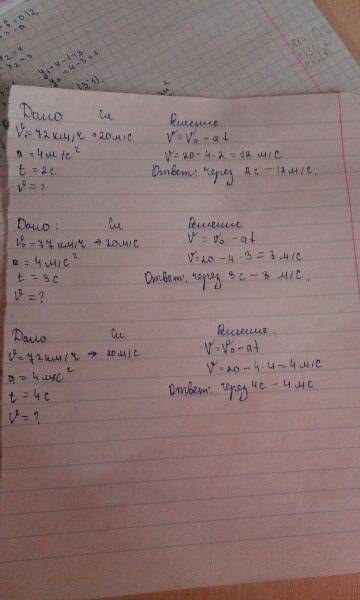 Дано Си Решение
V₀=72км/ч→20м/с V=V₀-at
a=4м/с² V=20-4·2=12 м/с
t=2с Ответ: через 2с-12м/с.
V=?
Дано: Си Решение
V₀=77км/ч→20м/с V=V₀-at
a=4м/с² V=20-4·3=8 м/с
t=3с Ответ: через 3с-8 м/с.
V=?
Дано Си Решение.
V=72км/ч→20м/с V=V₀-at
a=4м/с² V=20-4·4=4 м/с
t=4с Ответ: через 4с-4 м/с
V=?